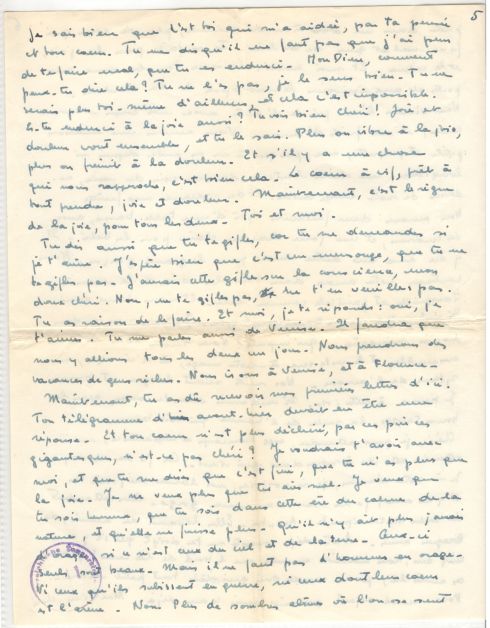 5
Je sais bien que c'est toi qui m'a aidée, par ta pensée
et ton cœur. Tu me dis qu'il ne faut pas que j'ai peur
de te faire mal, que tu es endurci. Mon Dieu, comment
peux-tu dire cela? Tu ne l'es pas, je le sens bien. Tu ne
serais plus toi-même d'ailleurs, et cela c'est impossible.
Es-tu endurci à la joie aussi? Tu vois bien chéri! Joie et
douleur vont ensemble, et tu le sais. Plus on vibre à la joie,
plus on frémit à la douleur. Et s'il y a une chose
qui nous rapproche, c'est bien cela. Le cœur à vif, prêt à
tout prendre, joie et douleur. Maintenant, c'est le règne
de la joie, pour tous les deux. Toi et moi.
Tu dis aussi que tu te gifles, car tu me demandes si
je t'aime. J'espère bien que c'est un mensonge, que tu ne
te gifles pas. J'aurais cette gifle sur la conscience, mon
doux chéri. Non, ne te gifles pas, ne t'en veuilles pas.
Tu as raison de le faire. Et moi, je te réponds: oui, je
t'aime. Tu me parles aussi de Venise. Il faudra que
nous y allions tous les deux un jour. Nous prendrons des
vacances de gens riches. Nous irons à Venise, et à Florence.
Maintenant, tu as dû recevoir mes premières lettres d'ici.
Ton télégramme d' avant-hier devait en être une
réponse. Et ton cœur n'est plus déchiré, par ces pinces
gigantesques, n'est-ce pas chéri? Je voudrais t'avoir avec
moi, et que tu me dises que c'est fini, que tu n'as plus que
la joie. Je ne veux plus que tu aies mal. Je veux que
tu sois heureux, que tu sois dans cette ère du calme de la
nature, et qu'elle ne finisse plus. Qu'il n'y ait plus jamais
d'orages, si ce n'est ceux du ciel et de la terre. Ceux-ci
seuls sont beaux. Mais il ne faut pas d'hommes en orage.
Ni ceux qu'ils subissent en guerre, ni ceux dont leur cœur
est l'abîme. Non. Plus de sombres abîmes où l'on se sent